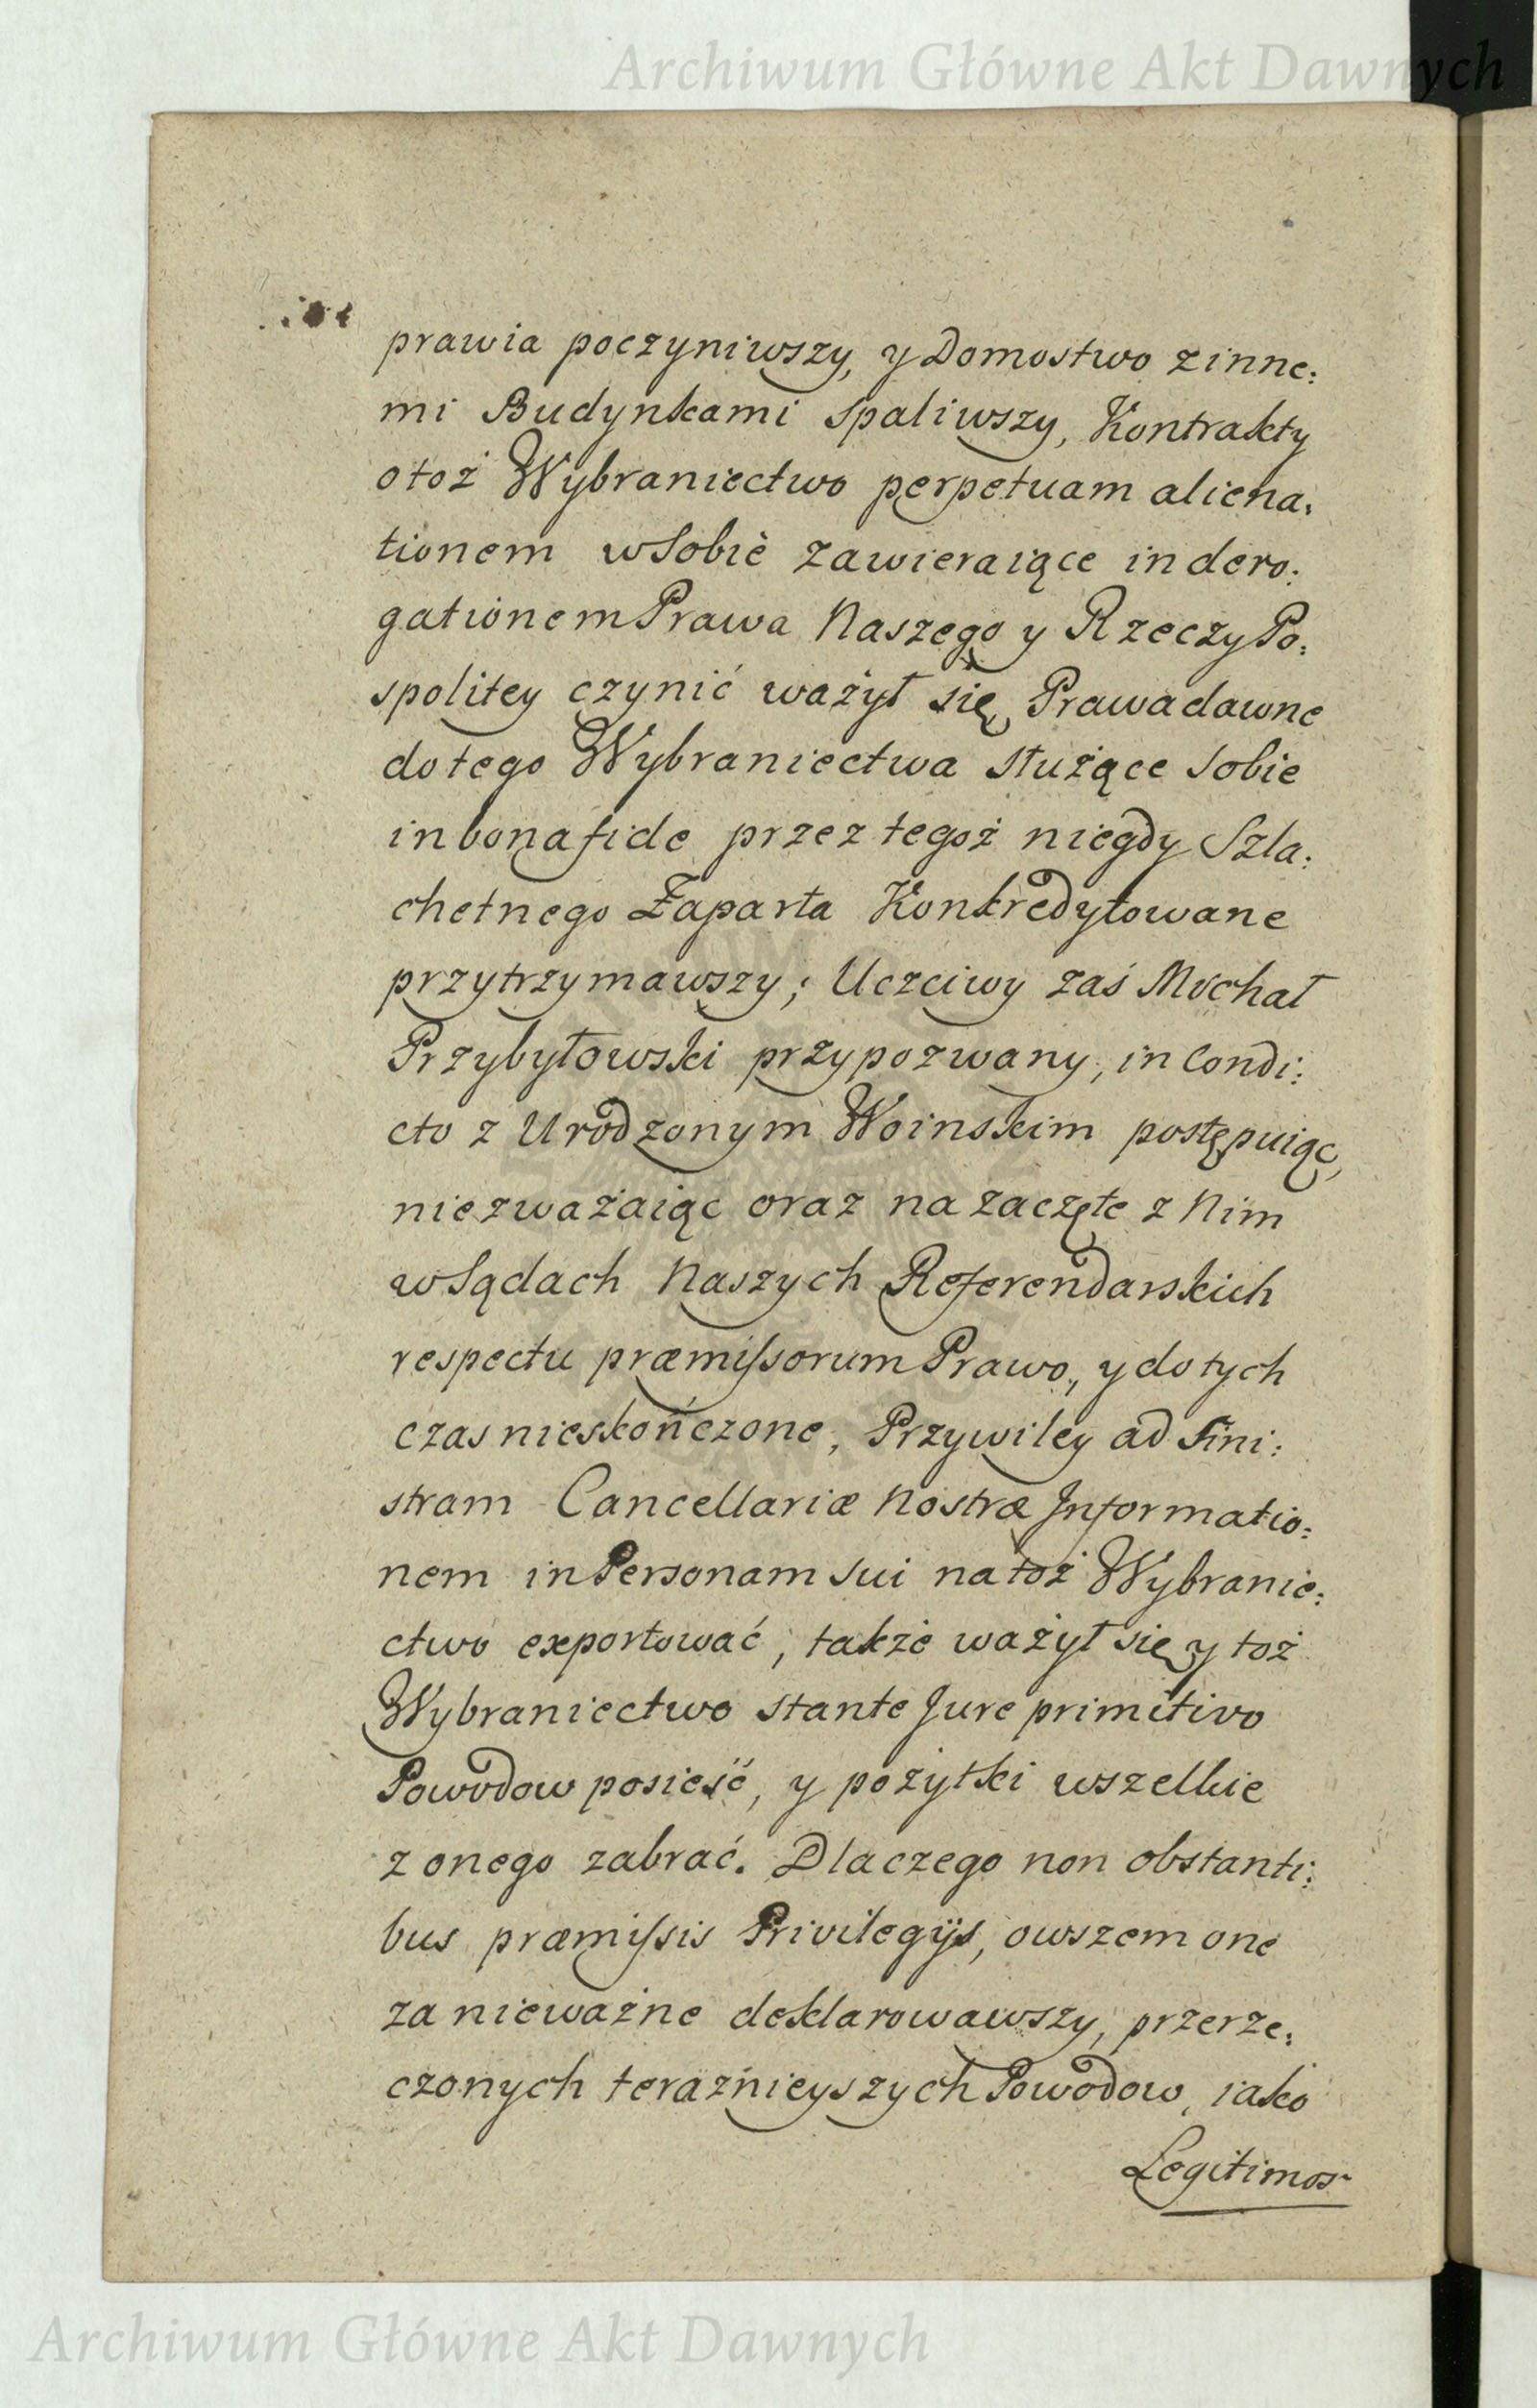 Archiwum Główne Akt Dawnych
prawia poczyniwszy, y Domostwo z inne:
mi Budynkami spaliwszy, Kontrakty
o toż Wybraniectwo perpetuam aliena:
tionem w sobie zawieraiące in dero:
gationem Prawa Naszego y Rzeczy Po:
spolitey czynić ważył się, Prawa dawne
do tego Wybraniectwa służące sobie
in bona fide przez tegoż niegdy Szla:
chetnego Łaparta Konkredytowane
przytrzymawszy; Uczciwy zaś Mychał
Przybyłowski przypozwany, in Condi:
cto z Urodzonym Woinskim postępuiąc,
niezważaiąc oraz na zaczęte z Nim
w Sądach Naszych Referendarskich
respectu præmissorum Prawo, y do tych
czas nieskończone, Przywiley ad Sini:
stram Cancellariæ Nostræ Informatio:
nem in Personam sui na toż Wybranie:
ctwo exportować, także ważył się y toż
Wybraniectwo stante Jure primitivo
Powodow posieść, y pożytki wszelkie
z onego zabrać. Dlaczego non obstanti:
bus præmissis Privilegijs, owszem one
za nieważne deklarowawszy, przerze:
czonych teraźnieyszych Powodow, iako
Legitimos
Archiwum Główne Akt Dawnych